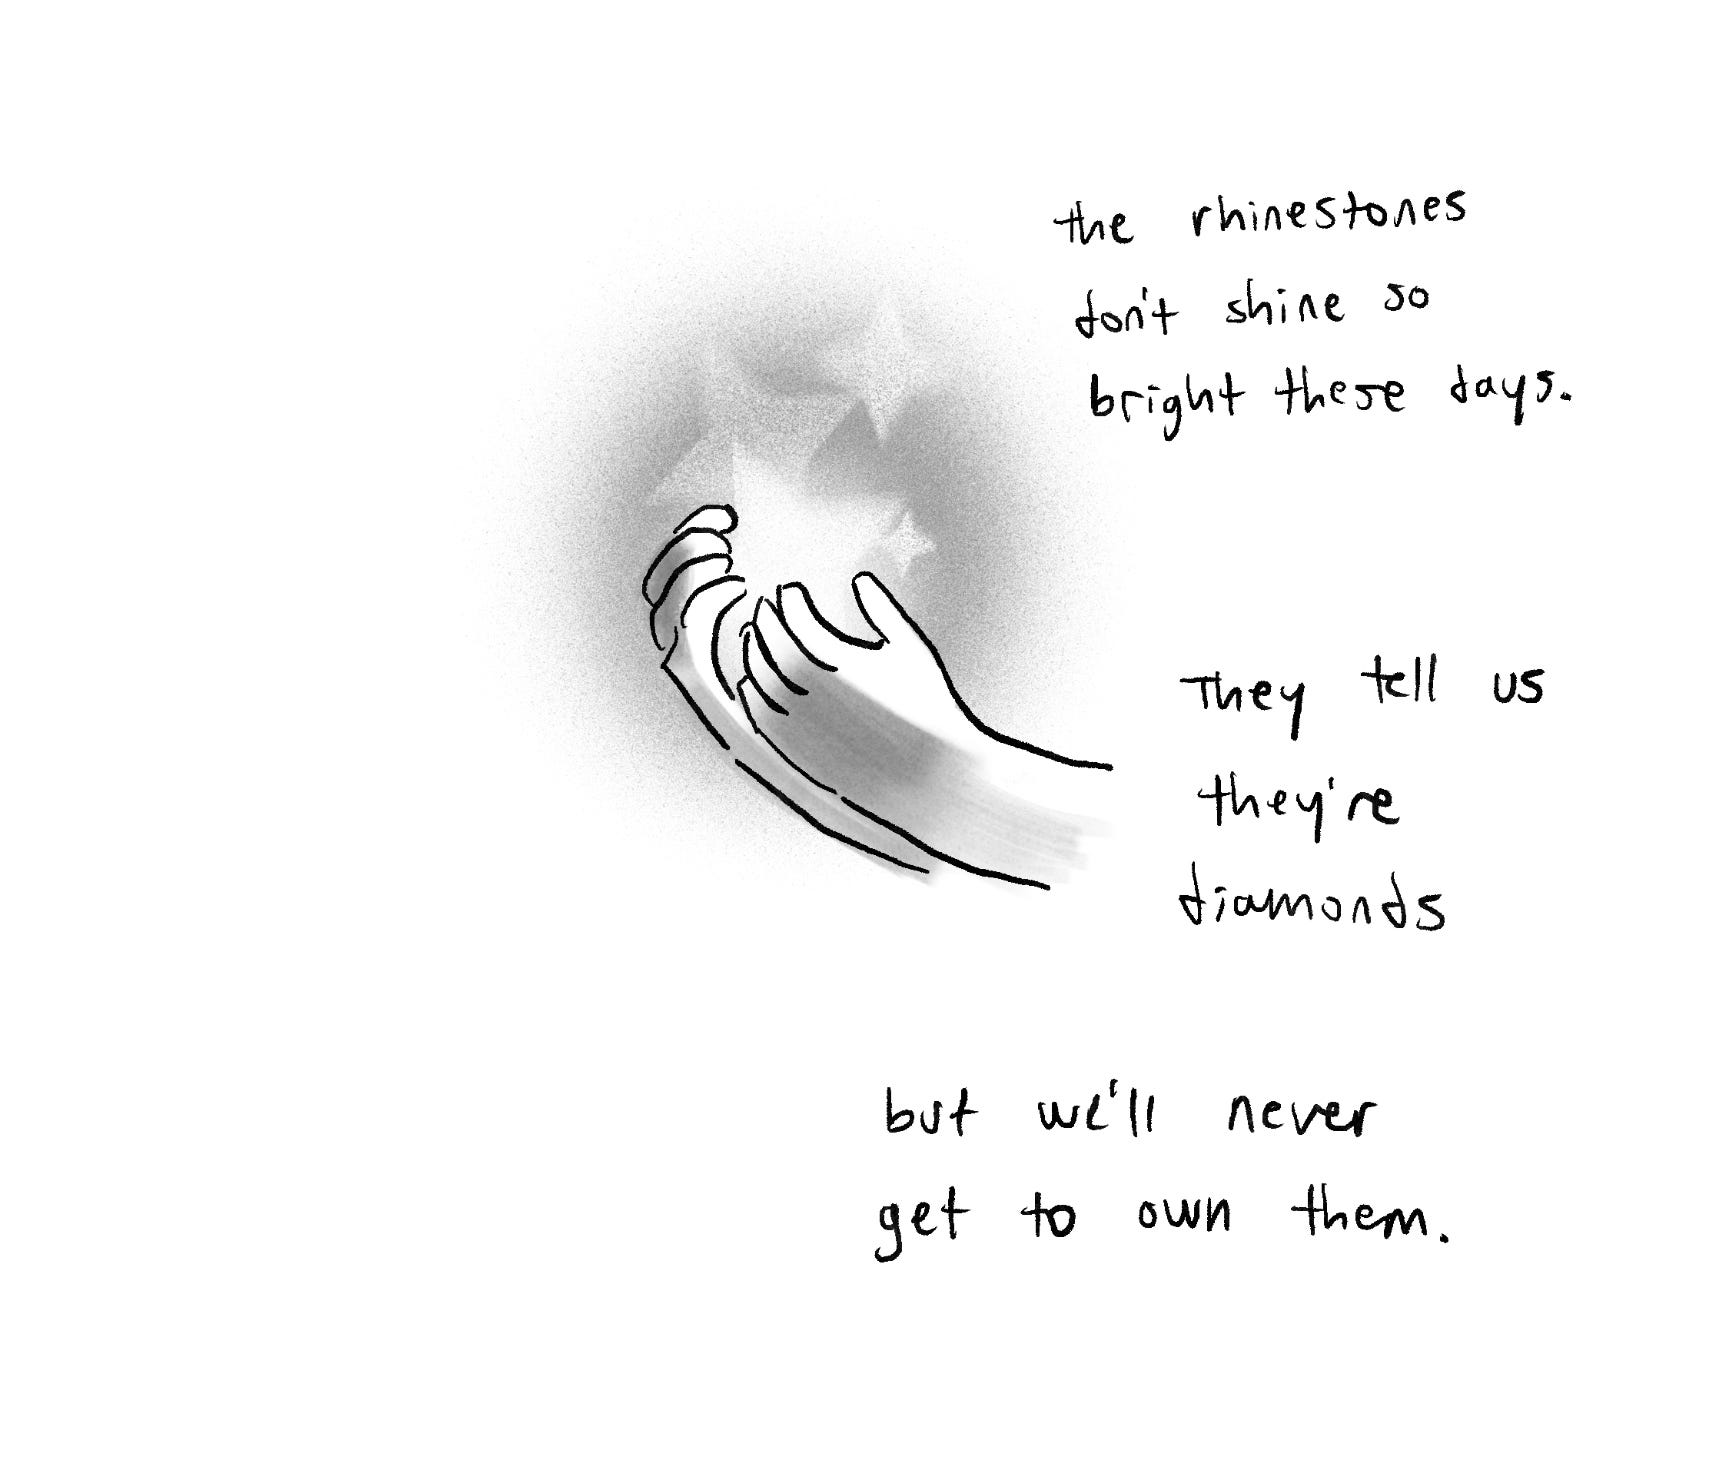 the rhinestones
don't shine so
bright these days.
They tell us
they're
diamonds
but we'll never
get to own them.